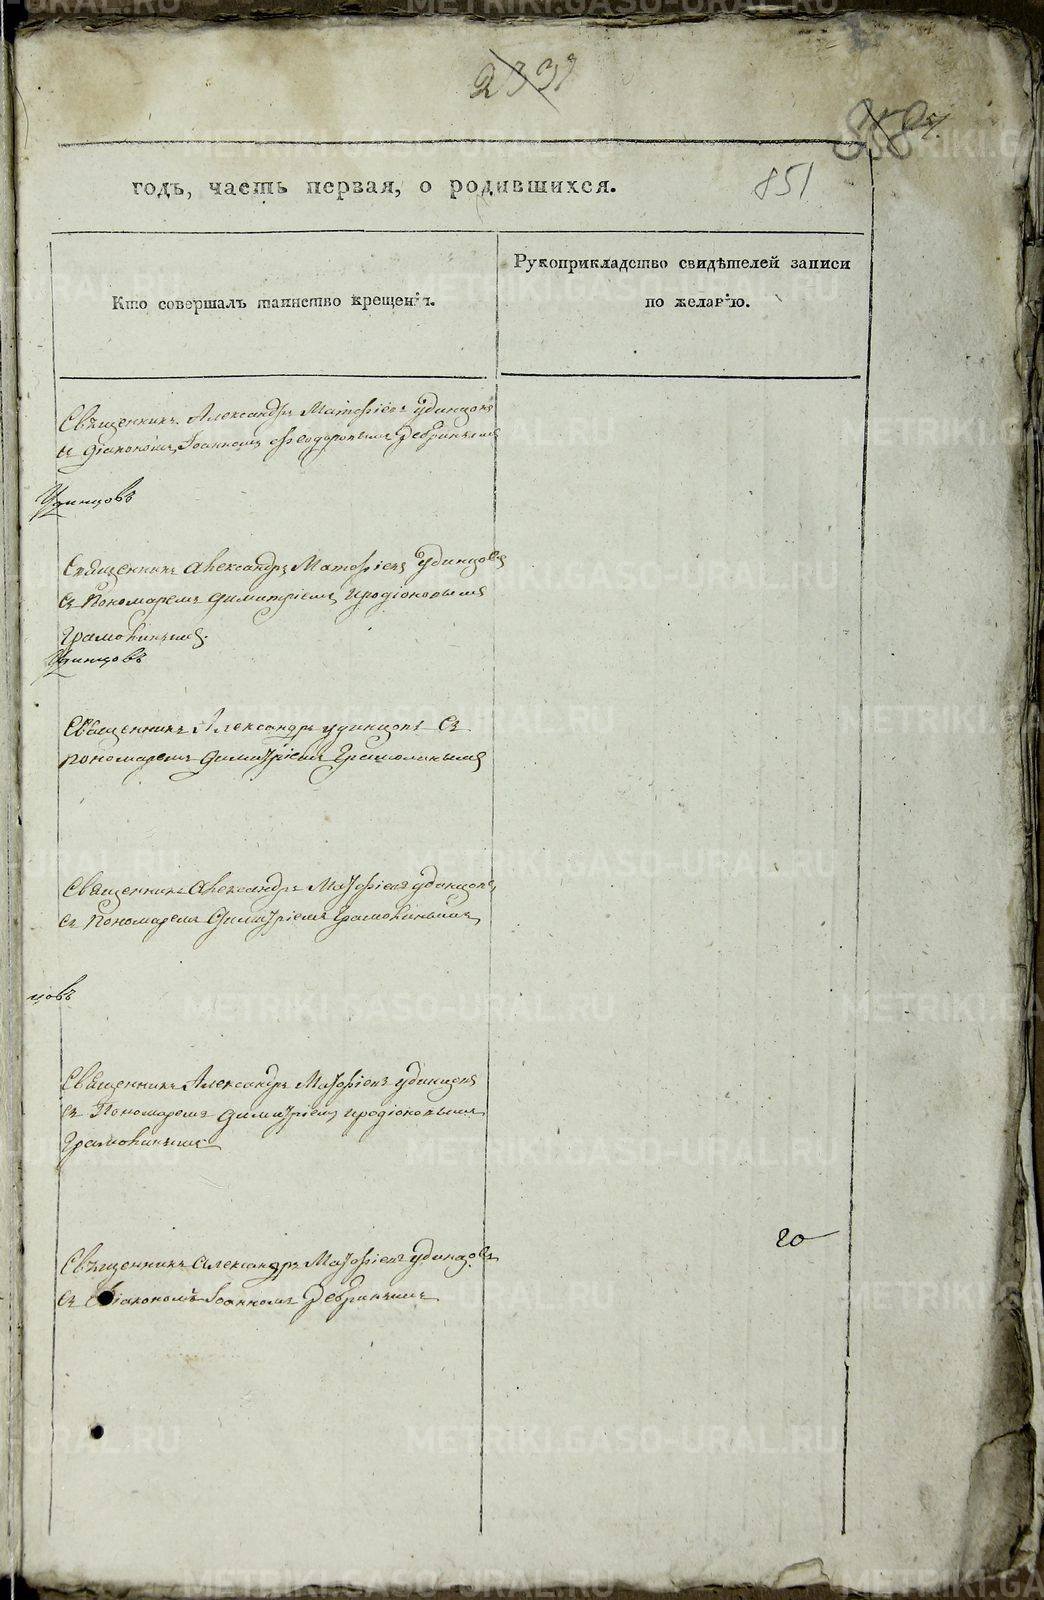 851
годъ, часть первая, о родившихся.
Кто совершалъ таинство крещенія.
Рукоприкладство свидѣтелей записи
по желанію.
Священникъ Александръ Матѳіевъ Удинцовъ
съ діакономъ Іоанномъ Ѳеодоровымъ Дебринымъ
Удинцовъ
Священникъ Александръ Матѳіевъ Удинцовъ
съ Пономаремъ Димитріемъ Иродіоновымъ
Грамолинымъ.
Удинцовъ
Священникъ Александръ Удинцовъ съ
пономаремъ Димитріемъ Грамолинымъ
Священникъ Александръ Матѳіевъ Удинцовъ
съ Пономаремъ Димитріемъ Грамолинымъ
цовъ
Священникъ Александръ Матѳіевъ Удинцовъ
съ Пономаремъ Димитріемъ Иродіоновымъ
Грамолинымъ
20
Священникъ Александръ Матѳіевъ Удинцовъ
съ Діакономъ Іоанномъ Дебринымъ
METRIKI.GASO-URAL.RU